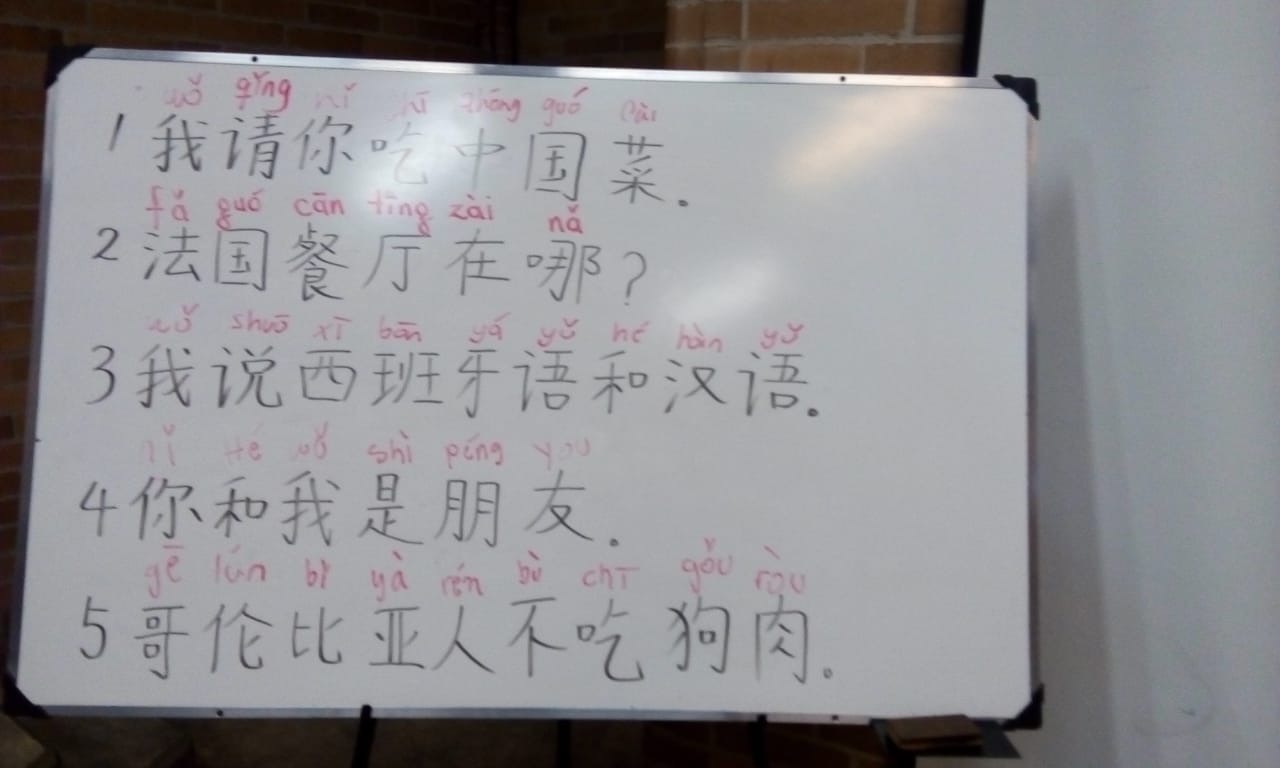 wǒ qǐng nǐ chī zhōng guó cài
1 我请你吃中国菜.
fǎ guó cān tīng zài nǎ
2 法国餐厅在哪?
wǒ shuō xī bān yá yǔ hé hàn yǔ
3 我说西班牙语和汉语.
nǐ Hé wǒ shì péng you
4 你和我是朋友.
gē lún bǐ yà rén bù chī gǒu ròu
5 哥伦比亚人不吃狗肉.